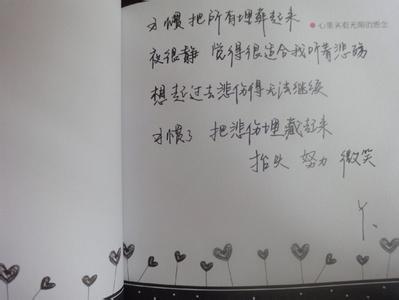 习惯把所有埋葬起来
心里头有无限的感念
夜很静 觉得很适合我听着悲伤
想起过去悲伤得无法继续
习惯了 把悲伤埋藏起来
抬头 努力 微笑
Y、